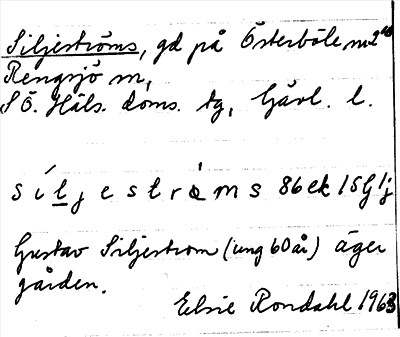 Siljeströms, gd på Österböle nr 2
Rengsjö sn,
S Ö. Häls. doms. tg, Gävl. l.
síljeströ̀ms 86 ek 15G1j
Gustav Siljeström (ung 60 år) äger
gården.
Elsie Rondahl 1963